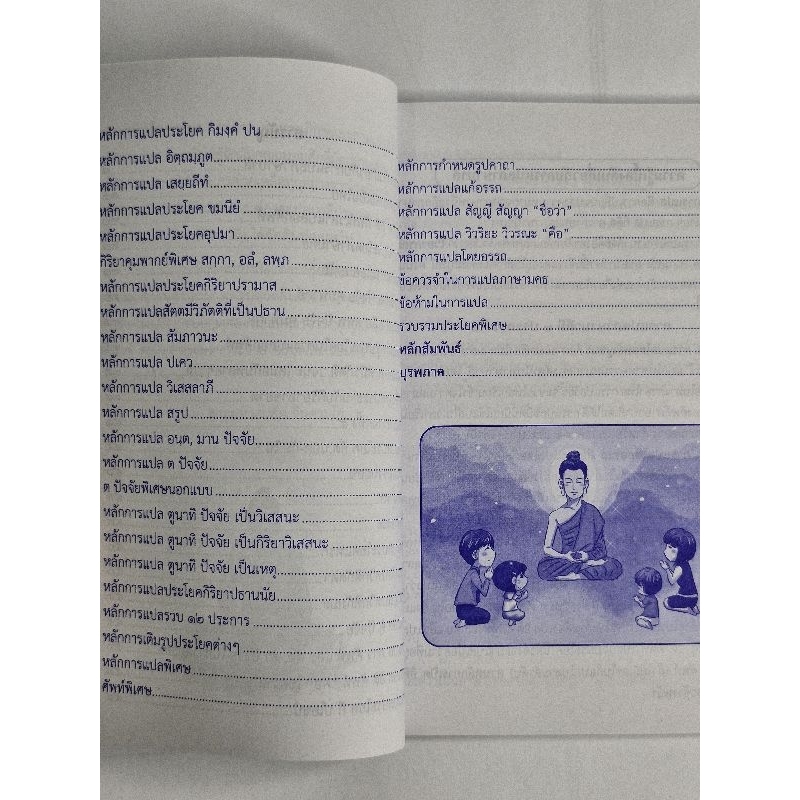 หลักการแปลประโยค กิมงฺคํ ปน
หลักการแปล อิตฺถมฺภูต
หลักการแปล เสยฺยถีทํ
หลักการแปลประโยค ขมนียํ
หลักการแปลประโยคอุปมา
กิริยาคุมพากย์พิเศษ สกฺกา, อลํ, ลพฺภ
หลักการแปลประโยคกิริยาปรามาส
หลักการแปลสัตตมีวิภัตติที่เป็นปธาน
หลักการแปล สัมภาวนะ
หลักการแปล ปเคว
หลักการแปล วิเสสลาภี
หลักการแปล สรูป
หลักการแปล อนฺต, มาน ปัจจัย
หลักการแปล ต ปัจจัย
ต ปัจจัยพิเศษนอกแบบ
หลักการแปล ตูนาทิ ปัจจัย เป็นวิเสสนะ
หลักการแปล ตูนาทิ ปัจจัย เป็นกิริยาวิเสสนะ
หลักการแปล ตูนาทิ ปัจจัย เป็นเหตุ
หลักการแปลประโยคกิริยาปธานนัย
หลักการแปลรวบ ๑๒ ประการ
หลักการเติมรูปประโยคต่างๆ
หลักการแปลพิเศษ
ศัพท์พิเศษ
หลักการกำหนดรูปคาถา
หลักการแปลแก้อรรถ
หลักการแปล สัญญี สัญญา "ชื่อว่า"
หลักการแปล วิวริยะ วิวรณะ "คือ"
หลักการแปลโดยอรรถ
ข้อควรจำในการแปลภาษามคธ
ข้อห้ามในการแปล
รวบรวมประโยคพิเศษ
หลักสัมพันธ์
บุรพภาค